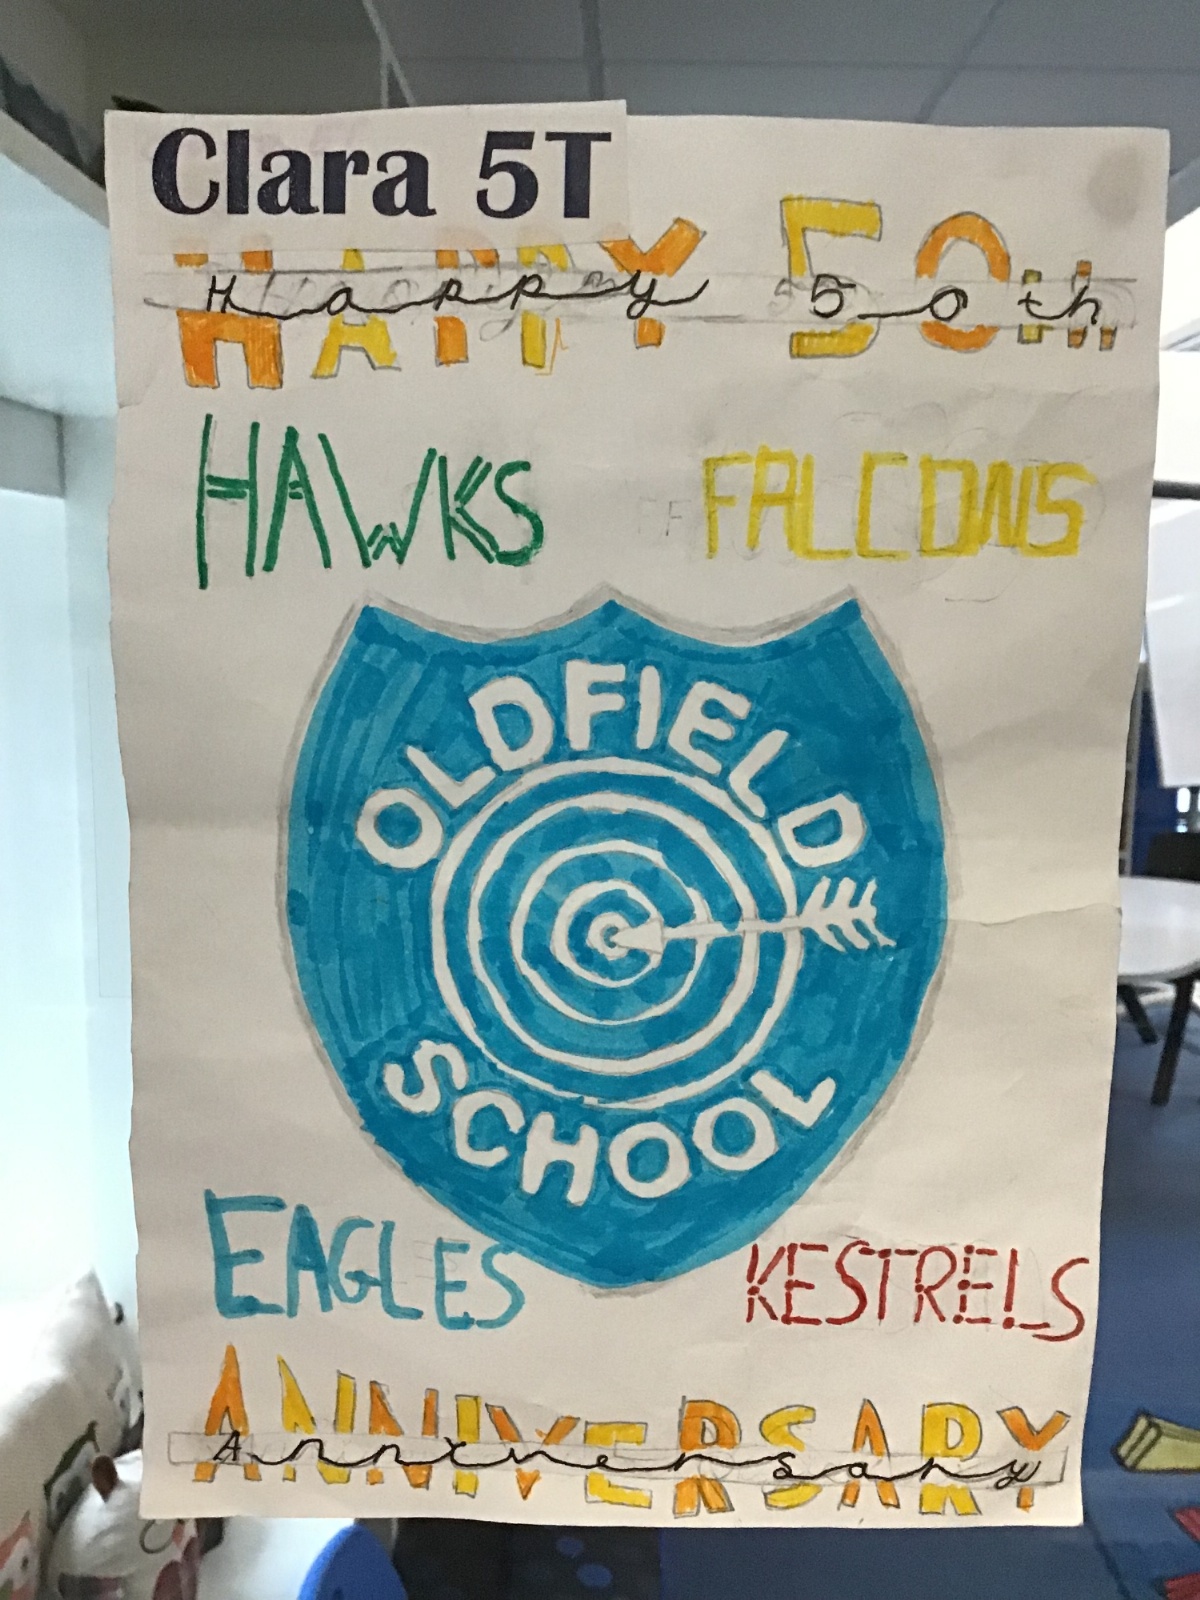 Clara 5T
HAPPY 50TH
Happy 50th
HAWKS FALCONS
OLDFIELD
SCHOOL
EAGLES KESTRELS
ANNIVERSARY
Anniversary